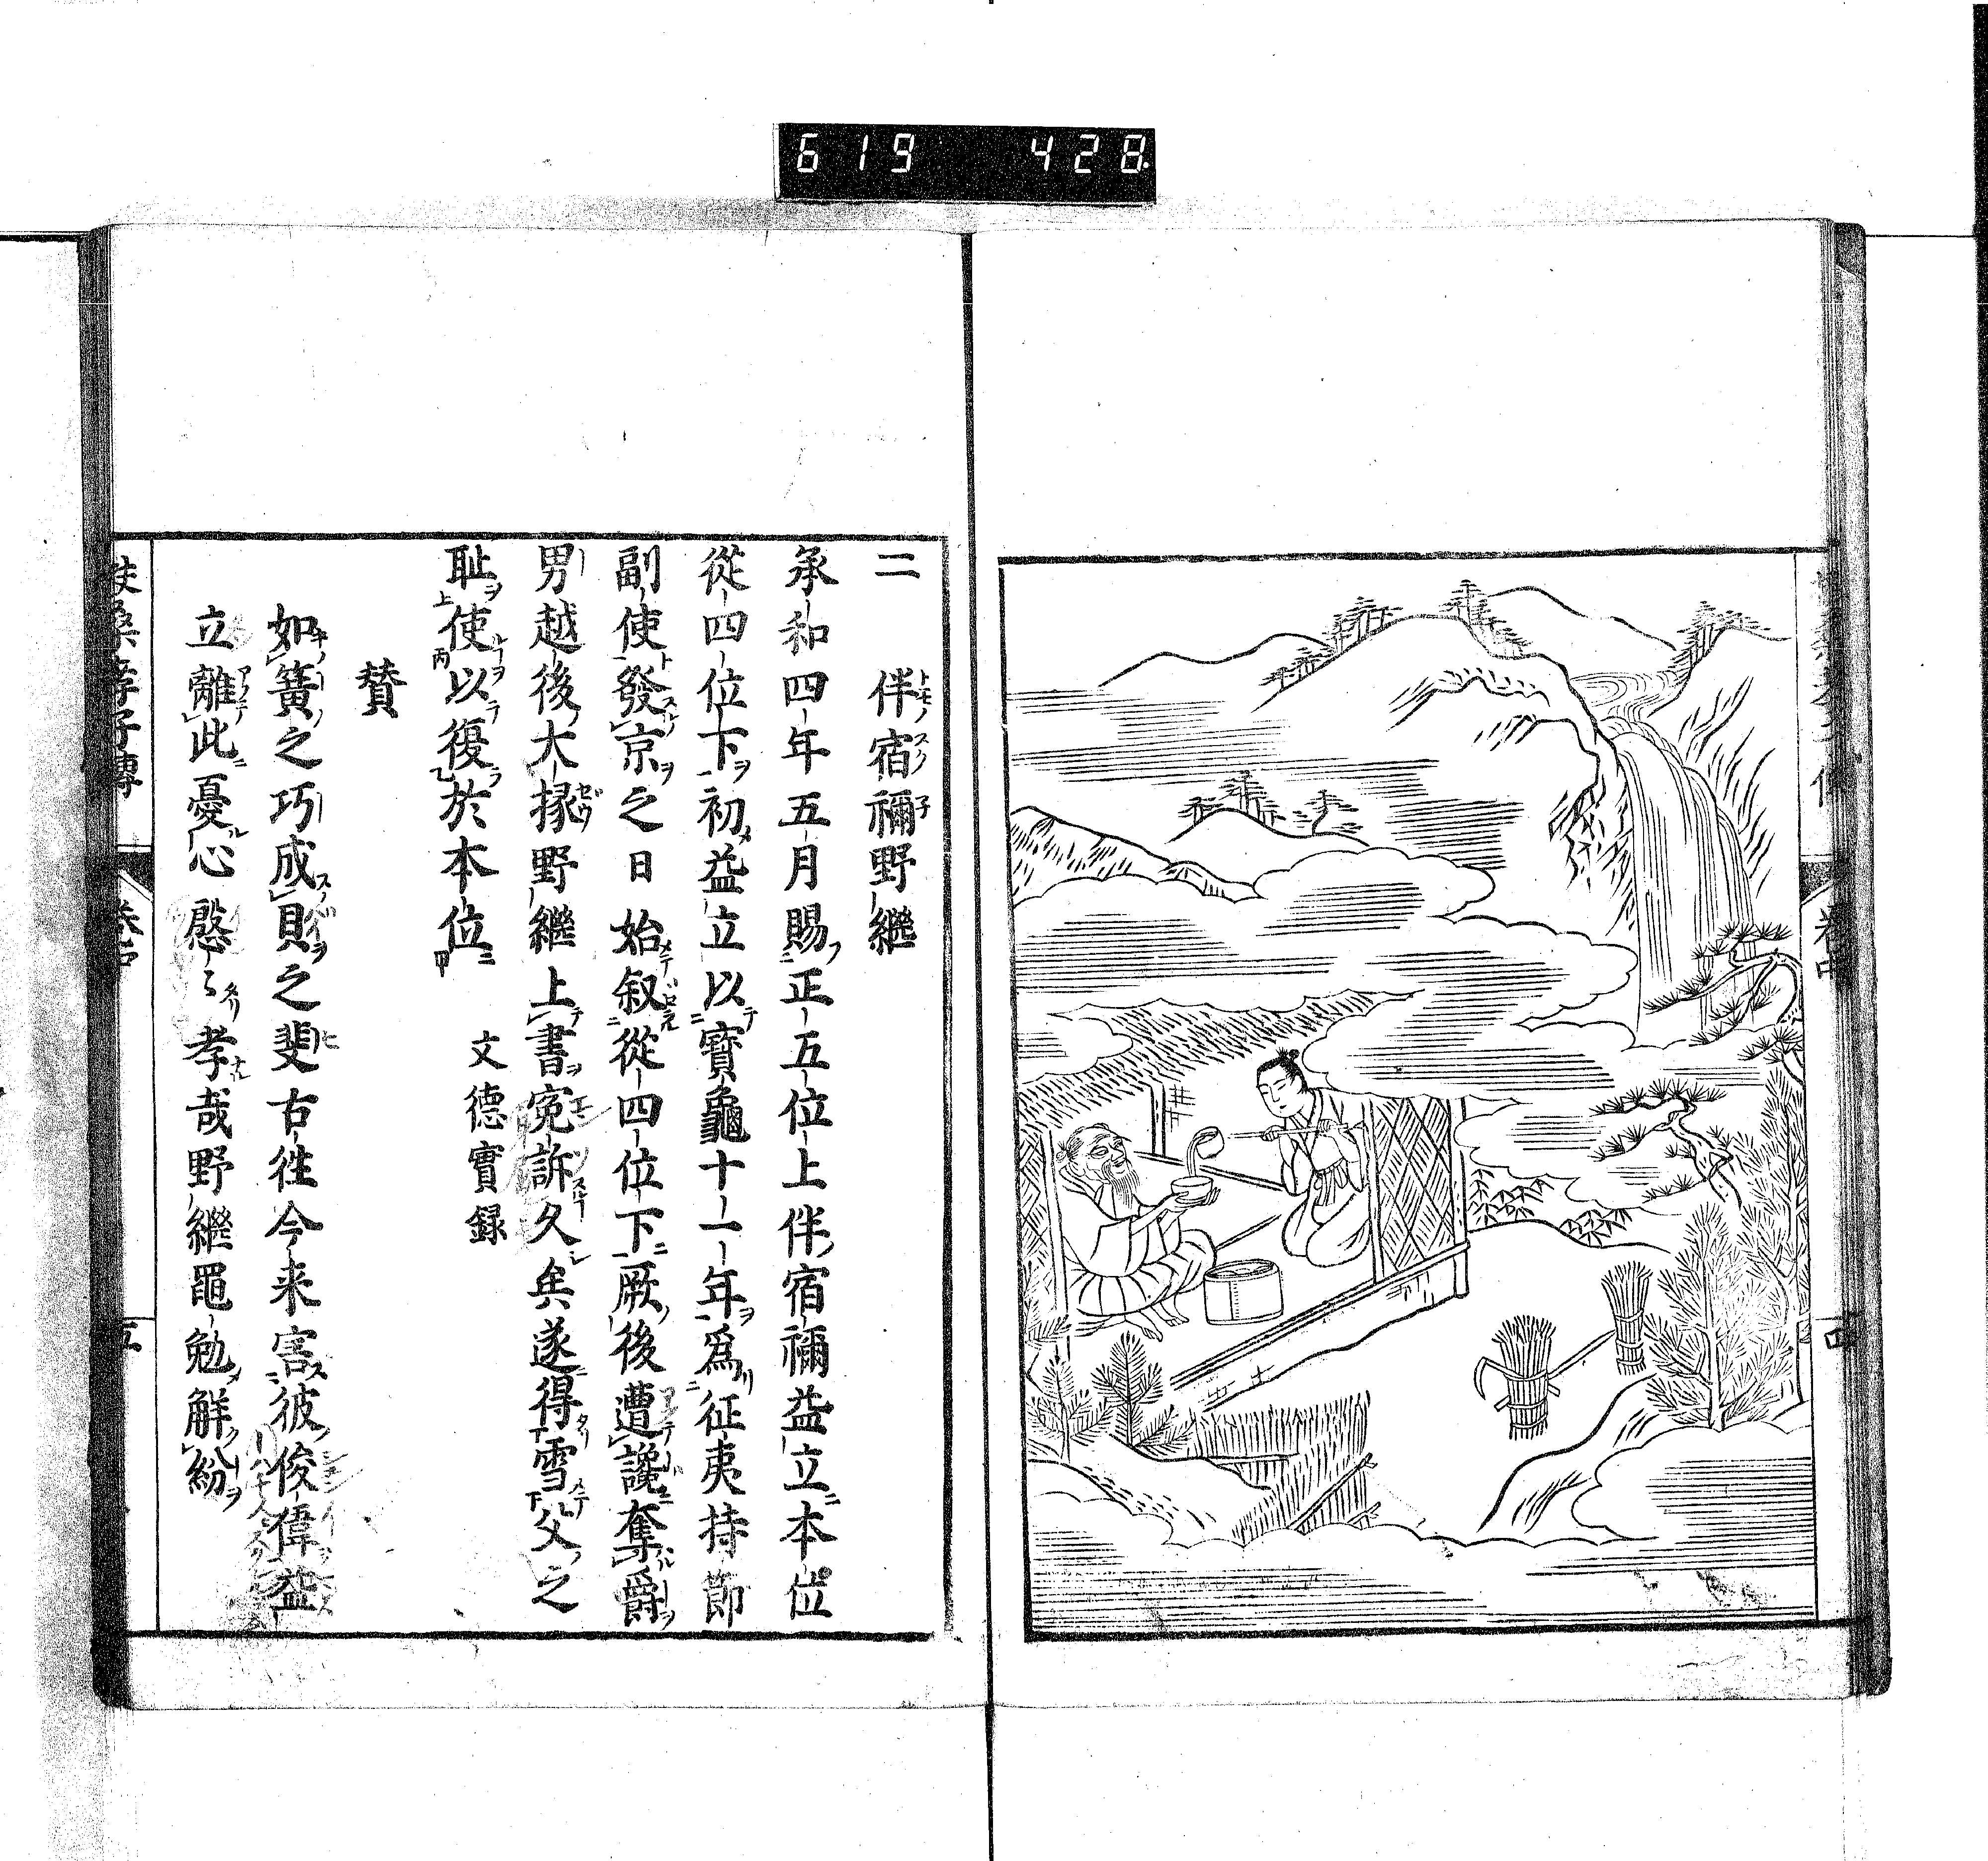 619 428
卷中
四
二 伴宿禰野繼
承和四年五月賜正五位上伴宿禰益立本位
從四位下初益立以寶龜十一年爲征夷持節
副使發京之日始叙從四位下厥後遭讒奪爵
男越後大掾野繼上書寃訴久矣遂得雪父之
耻使以復於本位 文德實録
賛
如簧之巧成貝之斐古往今来害彼俊偉益
立離此憂心慇〻孝哉野繼黽勉解紛
扶桒孝子傳
卷中
五